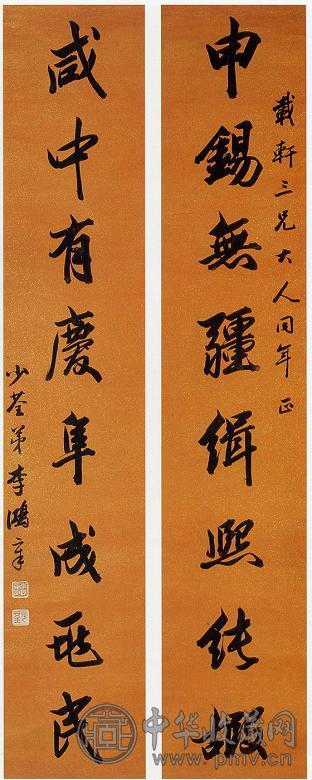 載軒三兄大人同年正
申錫無疆緝熙純嘏
咸中有慶阜成兆民
少荃弟李鴻章
中华收藏网
www.pmv.cn